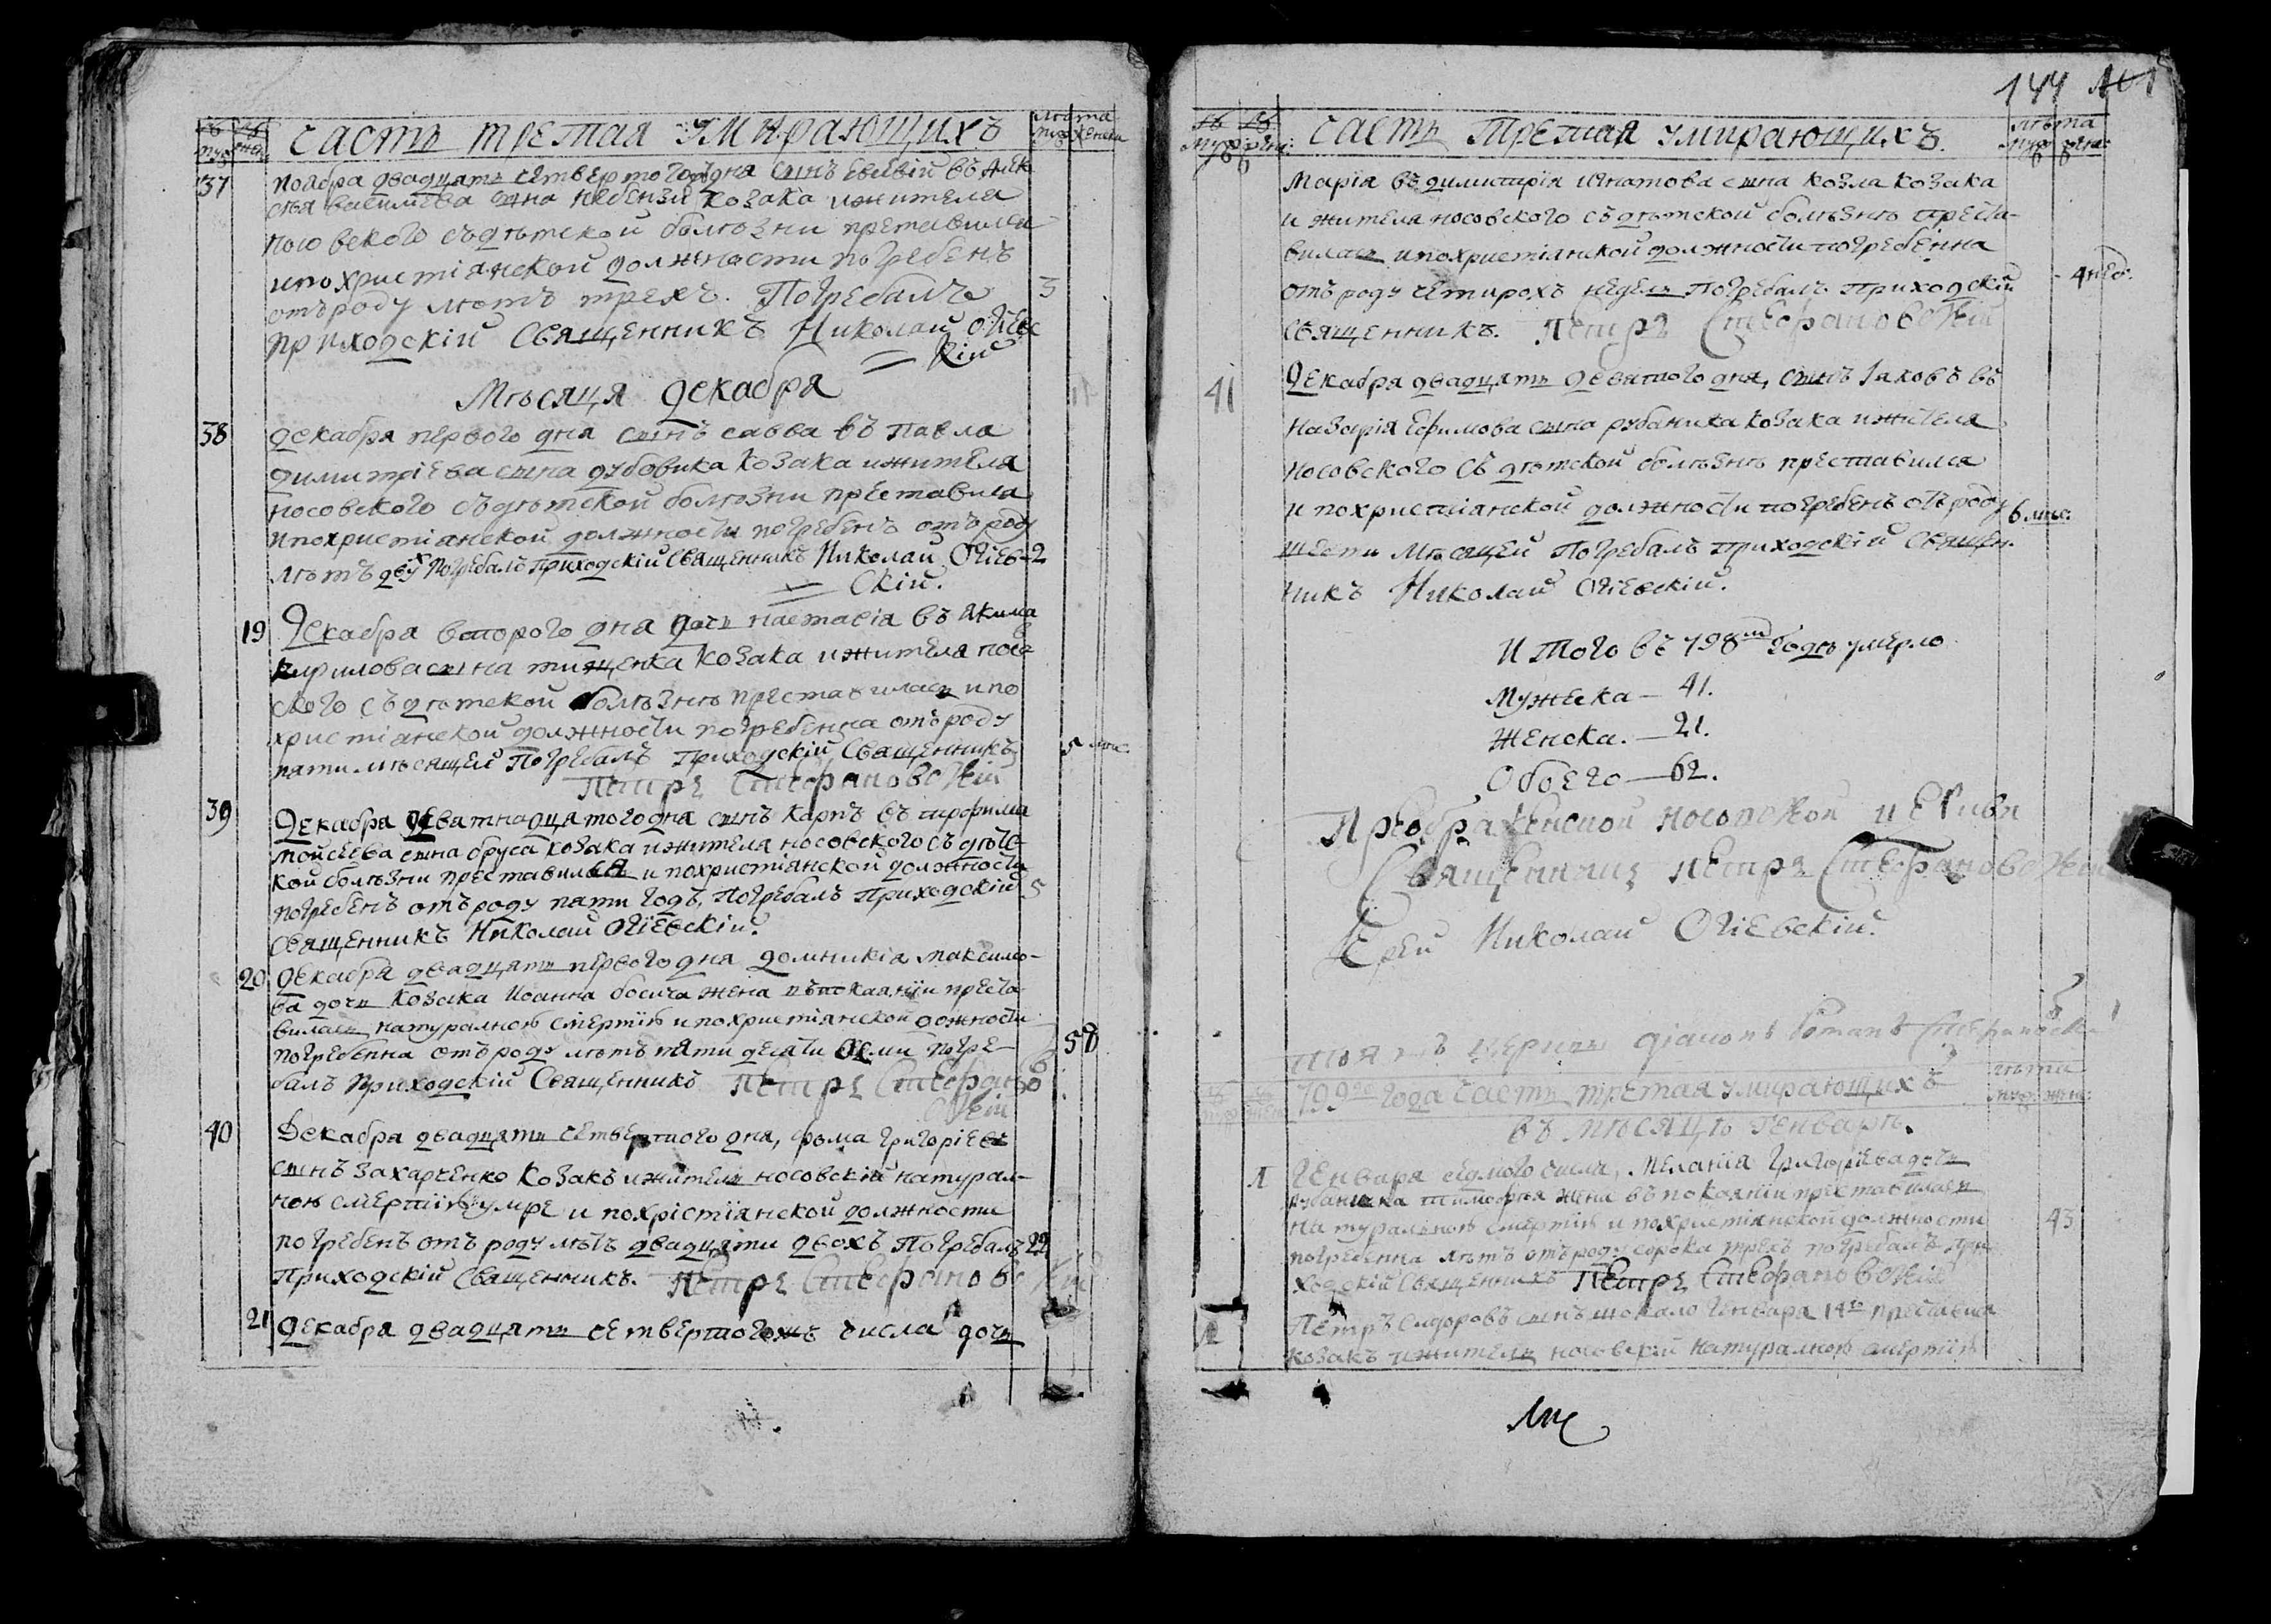 часть третая умирающихъ
лѣта
муж женска
37
ноября двадцять четвертого дня сынъ Евсевій въ Алек
сѣя василиева сына козака ижителя
носовского съдѣтской болѣзни преставился
ипохристіянской должности погребенъ
отъроду лѣтъ трехъ. Погребалъ 3
приходскій Священникъ Николай Огіевс
кій
Мѣсяця декабря
38
декабря первого дня сынъ савва въ павла
димитріева сына дубовика козака ижителя
носовского съдѣтской болѣзни преставися
ипохристіянской должности погребенъ отъроду
лѣтъ двух погребалъ приходскій Священникъ Николай Огіев- 2
скій.
19
Декабря второго дня дочь настасія въ якима
кирилова сына тищенка козака ижителя носов
ского съдѣтской болѣзнѣ преставилась ипо
христіянской должности погребенна отъроду
пяти мѣсяцей Погребалъ Приходскій Священникъ 5 мѣс:
Петръ Стефановскій
39
Декабря девятнадцятого дня сынъ карпъ въ трофима
мойсеева сына бруса козака ижителя носовского съ дѣтс-
кой болѣзни преставился и похристіянской должности
погребенъ отъроду пяти годъ, погребалъ Приходскій 5
Священникъ Николай Огіевскій.
20
Декабря двадцять первого дня домникія максимо-
ва дочь козака Иоанна босича жена въпокаяніи преста-
вилась натуралною смертію и похристіянской должности
погребенна отъроду лѣтъ пяти десяти осми погре- 58
балъ Приходскій Священникъ Петръ Стефанов
скій
40
Декабря двадцять четвертого дня, фома григоріевъ
сынъ захарченко козакъ ижитель носовскій натурал-
ною смертію умре и похрістіянской должности
погребенъ отъ роду лѣтъ двадцяти двохъ Погребалъ 22
Приходскій Священникъ. Петръ Стефановскій
21
Декабря двадцять четвертогожъ числа дочь
144
часть третая умирающихъ.
лѣта
Марія въ димитрія игнатова сына козла козака
и жителя носовского съ дѣтской болѣзнѣ преста-
вилась ипохристіянской должности погребенна
отъ роду четирохъ недель Погребалъ Приходскій 4 нед:
Священникъ. Петръ Стефановскій
41
Декабря двадцять девятого дня, сынъ Іаковъ въ
назарія Ефимова сына рубаника козака ижителя
носовского съ дѣтской болѣзнѣ преставился
и похристіянской должности погребенъ отъроду 6 мѣс:
шести мѣсяцей Погребалъ приходскій Священ-
никъ Николай Огіевскій.
Итого въ 798м годѣ умерло
Мужеска — 41.
Женска. — 21.
Обоего — 62.
Преображенской носовской церкви
Священникъ петръ Стефановскій
Іерей Николай Огіевскій.
тоя жъ церкви діаконъ Романъ
799го года часть третая умирающихъ
лѣта
муж жен:
въ мѣсяцѣ генварѣ.
1
Генваря седмого числа, Меланія григоріева дочь
рубаника тимофея жена въ покаяніи преставилась
натуралною смертію и похристіянской должности 43
погребенна лѣтъ отъроду сорока трехъ погребалъ при-
ходскій Священникъ Петръ Стефановскій
1
Петръ сидоровъ сынъ шокало генваря 14го преставися
козакъ ижитель носовскій натуралною смертію